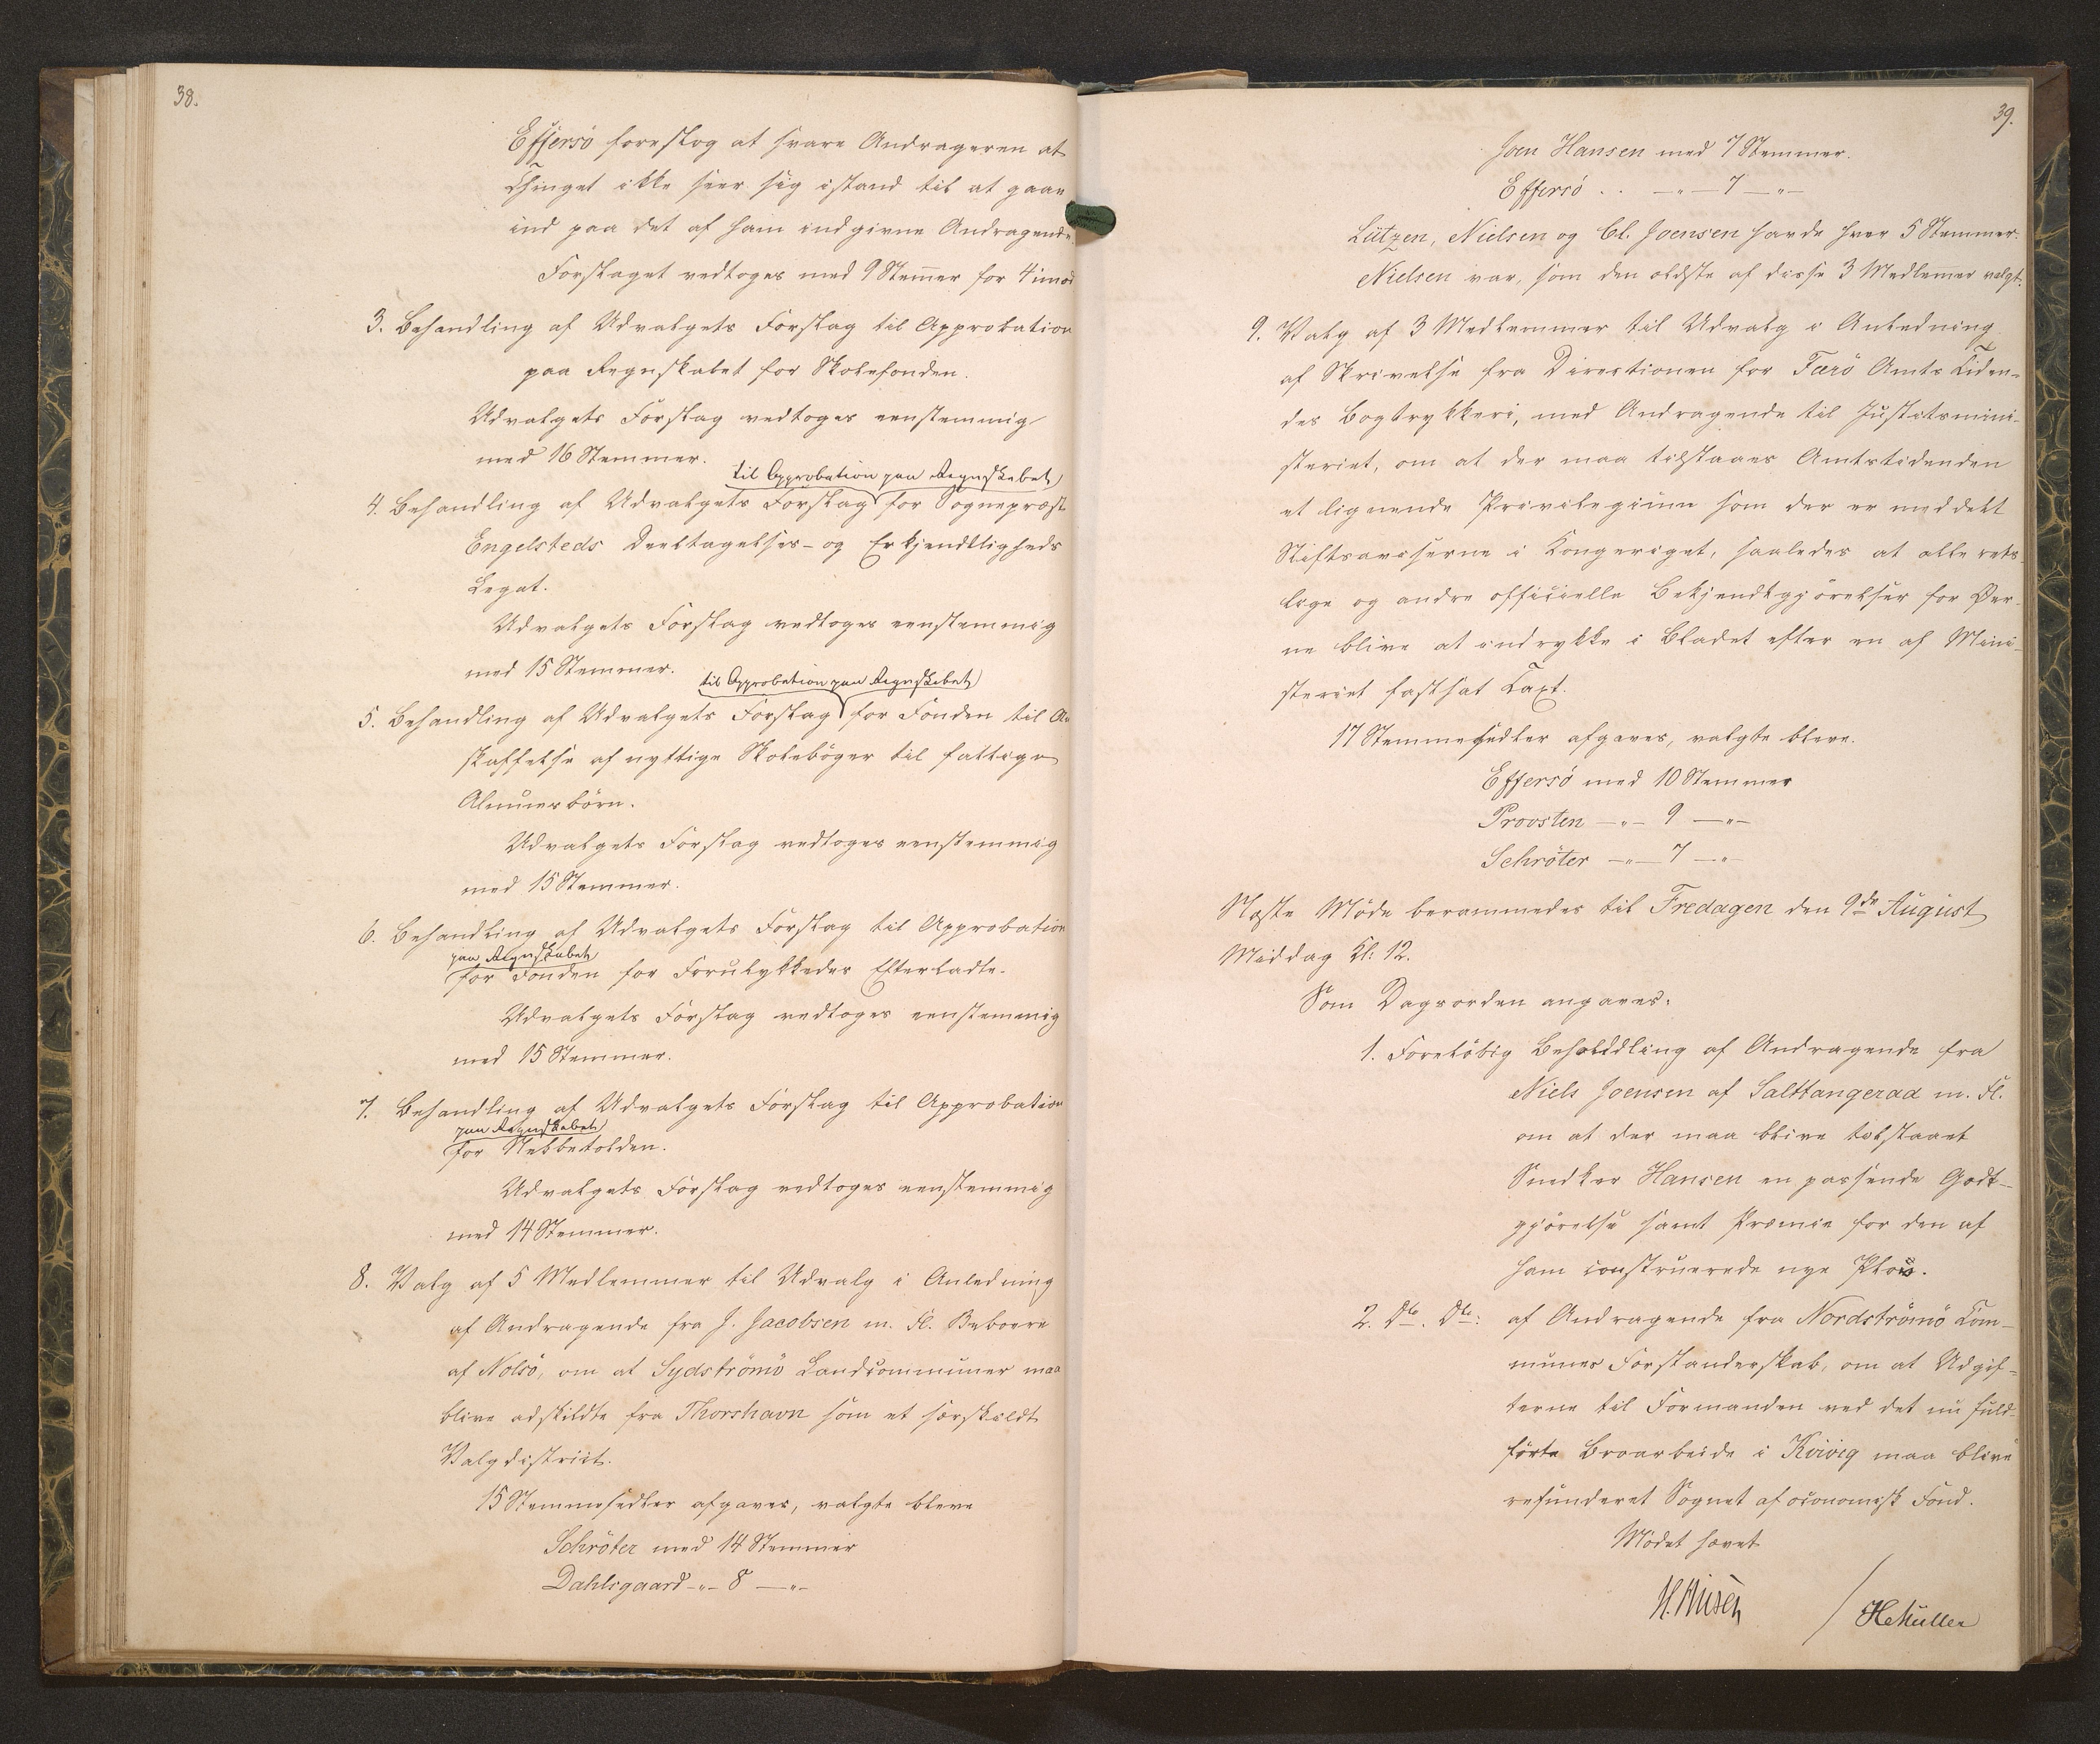 38.
Effersö foreslog at svare Andrageren at
Thinget ikke seer sig istand til at gaae
ind paa det af ham indgivne Andragende.
Forslaget vedtoges med 9 Stemer for 4 imod
3. Behandling af Udvalgets Forslag til Approbation
paa Regnskabet for Skolefonden.
Udvalgets Forslag vedtoges eenstemmig
med 16 Stemmer.
til Approbation paa Regnskabet
4. Behandling af Udvalgets Forslag for Sognepræst
Engelsteds Deeltagelses- og Erkjendtligheds
Legat.
Udvalgets Forslag vedtoges eenstemmig
med 15 Stemmer.
til Approbation paa Regnskabet
5. Behandling af Udvalgets Forslag for Fonden til An
skaffelse af nyttige Skolebøger til fattige
Almuesbörn.
Udvalgets Forslag vedtoges eenstemmig
med 15 Stemmer.
6. Behandling af Udvalgets Forslag til Approbation
paa Regnskabet
for Fonden for Forulykkedes Efterladte.
Udvalgets Forslag vedtoges eenstemmig
med 15 Stemmer.
7. Behandling af Udvalgets Forslag til Approbation
paa Regnskabet
for Nebbetolden.
Udvalgets Forslag vedtoges eenstemmig
med 14 Stemmer.
8. Valg af 5 Medlemmer til Udvalg i Anledning
af Andragende fra J. Jacobsen m. Fl. Beboere
af Nolsö, om at Sydströmö Landcommuner maa
blive adskildte fra Thorshavn som et særskildt
Valgdistrict.
15 Stemmesedler afgaves, valgte bleve
Schröter med 14 Stemmer
Dahlsgaard -"- 8 -"-
39.
Joen Hansen med 7 Stemmer.
Effersö . . -"- 7 -"-
Lützen, Nielsen og Cl. Joensen havde hver 5 Stemmer.
Nielsen var, som den ældste af disse 3 Medlemer valgt.
9. Valg af 3 Medlemmer til Udvalg i Anledning
af Skrivelse fra Directionen for Færö Amts Tiden-
des Bogtrykkeri, med Andragende til Justitsmini-
steriet, om at der maa tilstaaes Amtstidenden
et lignende Privilegium som der er meddelt
Stiftsaviserne i Kongeriget, saaledes at alle rets-
lige og andre officielle Bekjendtgjörelser for Øer-
ne blive at indrykke i Bladet efter en af Mini-
steriet fastsat Taxt.
17 Stemmesedler afgaves, valgte bleve.
Effersö med 10 Stemmer
Provsten -"- 9 -"-
Schröter -"- 7 -"-
Næste Möde berammedes til Fredagen den 9de August
Middag Kl: 12.
Som Dagsorden angaves:
1. Forelöbig Behandling af Andragende fra
Niels Joensen af Salttangeraa m. Fl.
om at der maa blive tilstaaet
Snedker Hansen en passende Godt-
gjörelse samt Præmie for den af
ham construerede nye Plov.
2. Do. Do: af Andragende fra Nordströmö Com-
munes Forstanderskab, om at Udgif-
terne til Formanden ved det nu fuld-
förte Broarbeide i Kvivig maa blive
refunderet Sognet af oconomisk Fond.
Mödet hævet
/ HcMüller